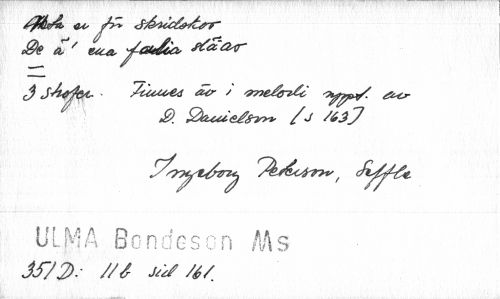 Akta er för skridskor
De ä' ena farlia stååv
=
3 strofer. Finnes äv i melodi uppt. av
D. Danielson [s 163]
Ingeborg Peterson, Säffle
ULMA Bondeson Ms
351 D: 11 b sid 161.